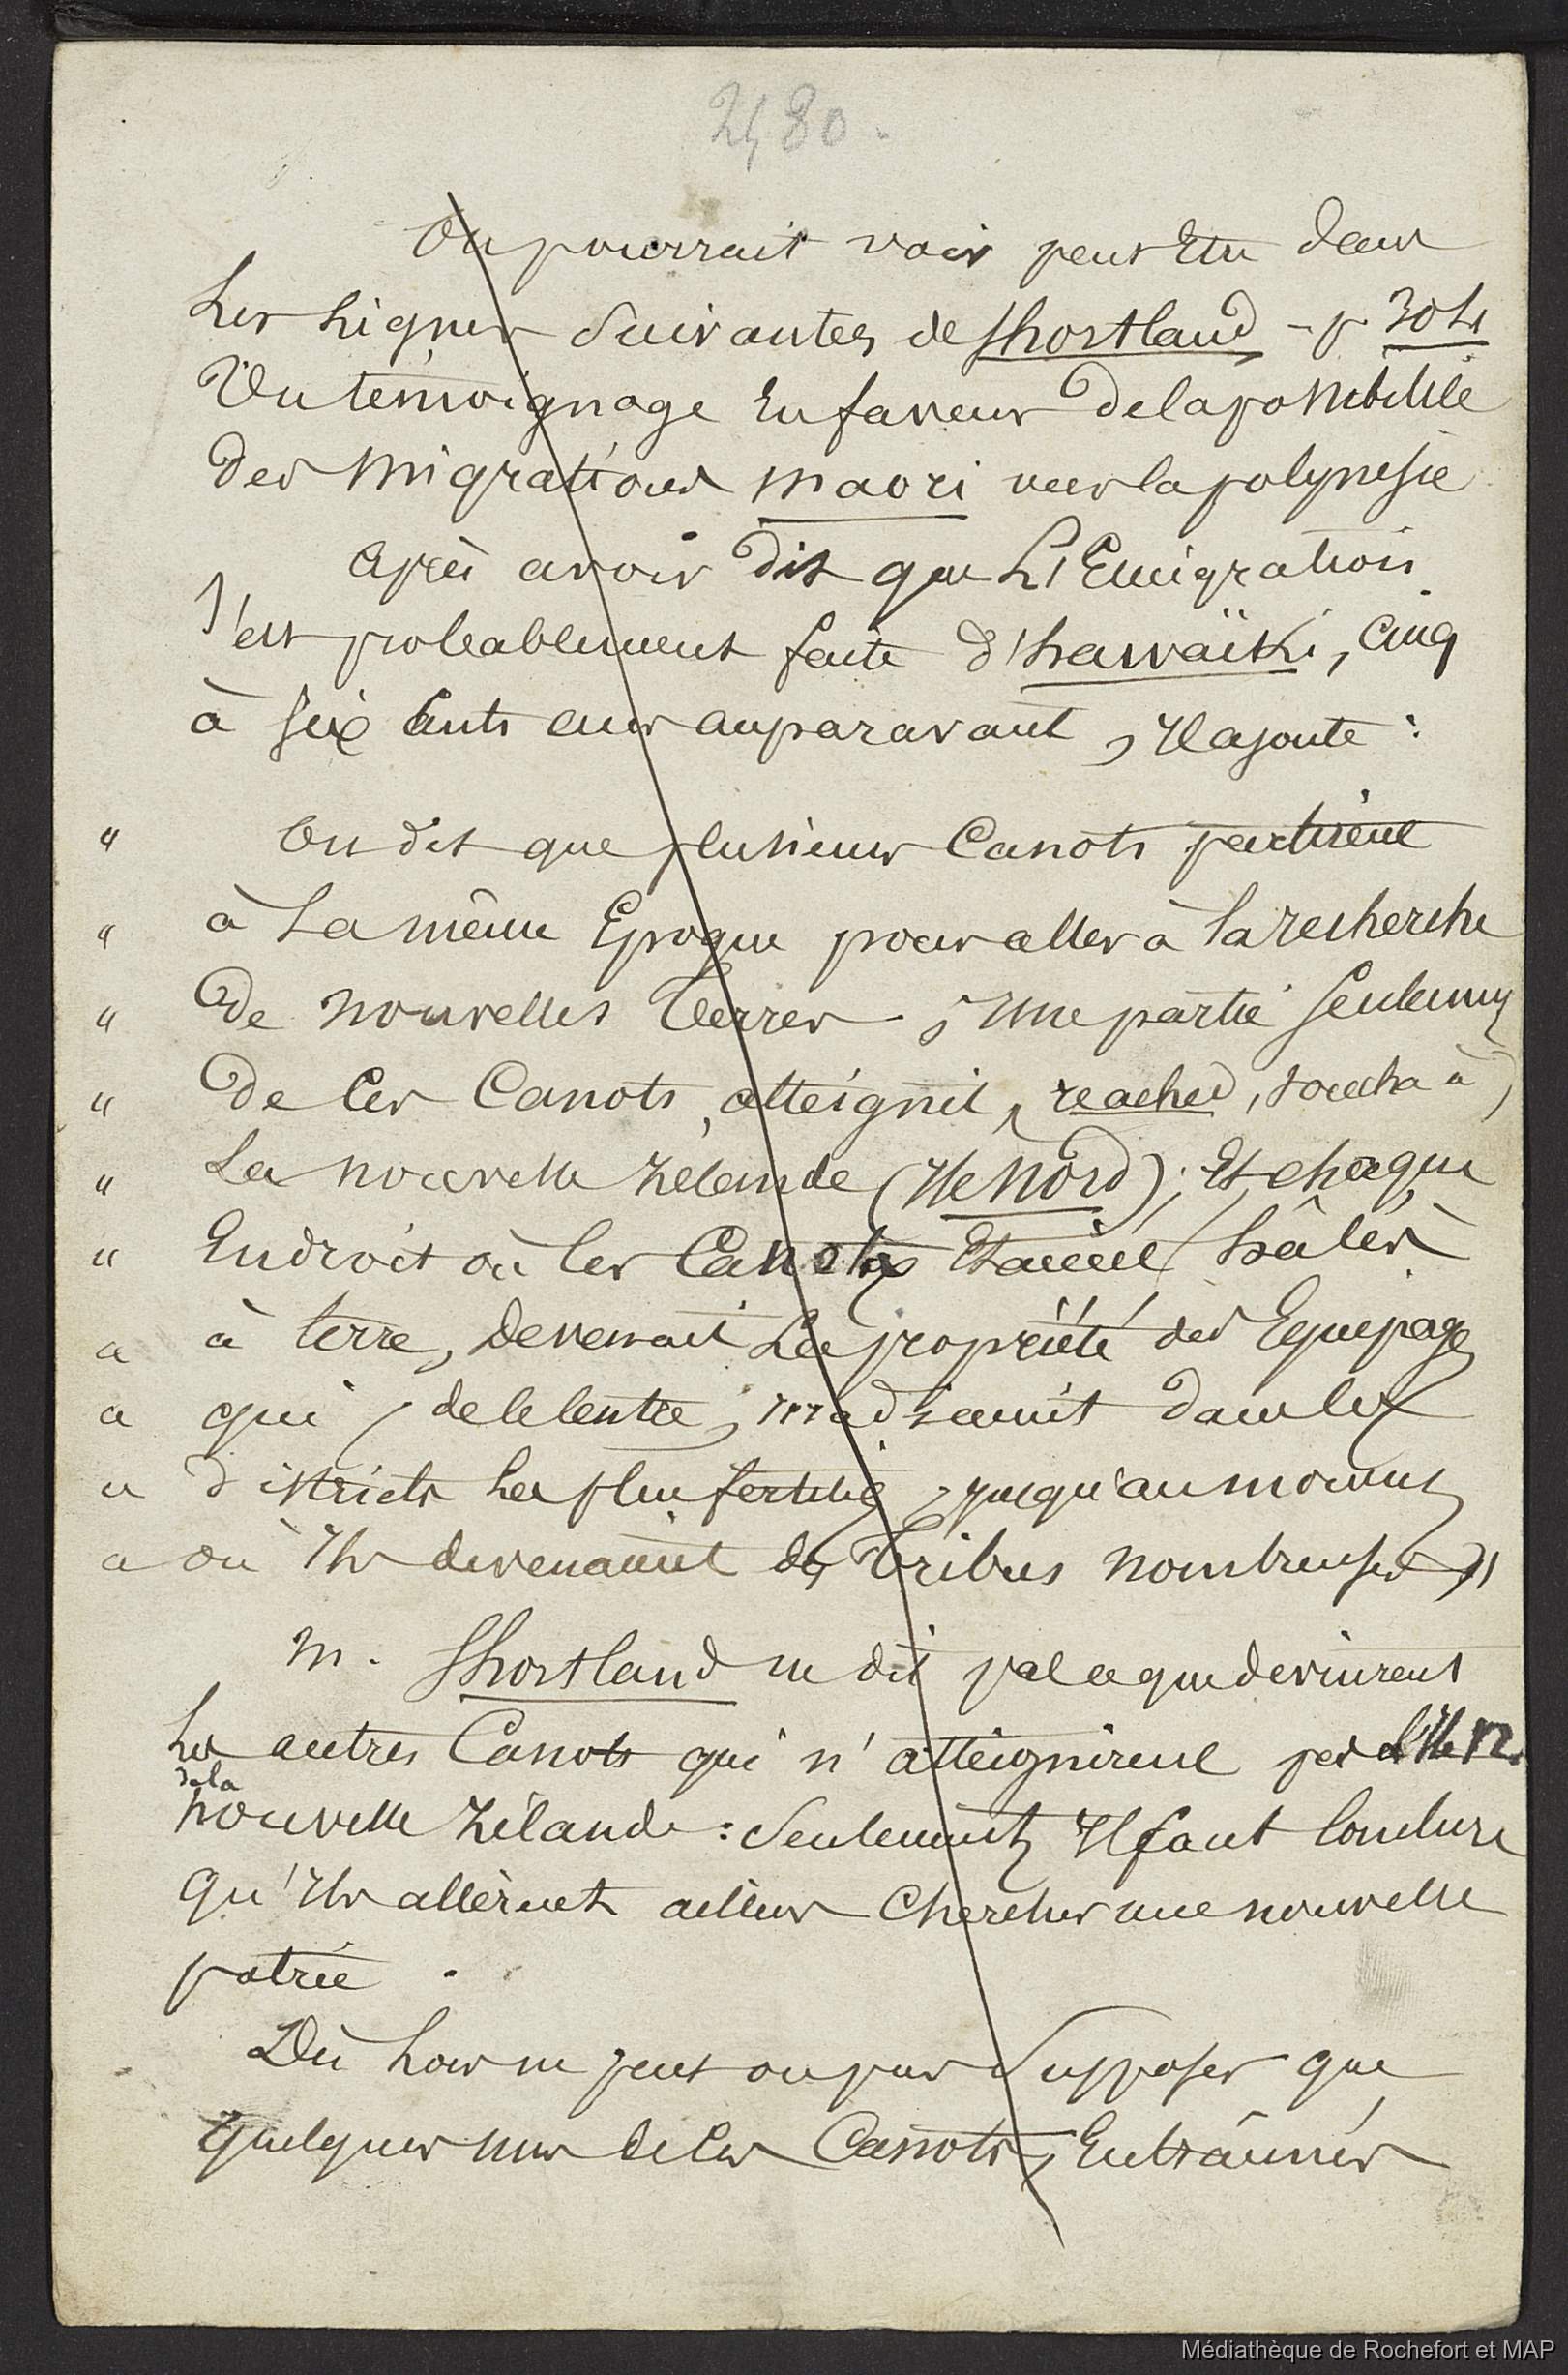 2480.
On pourrait voir peut Etre dans
Les Lignes Suivantes de Shortland - p 304
Un témoignage En faveur de la possibilité
des Migrations maori vers la polynesie
après avoir dit que L'Emigration
s'est probablement faite d'hawaïki, cinq
à six cents ans auparavant, Il ajoute :
" On dit que plusieurs Canots partirent
" à La même Epoque pour aller à la recherche
" de nouvelles terres, Une partie seulement
" de ces Canots, atteignit, reached, toucha à,
" La nouvelle Zélande (Ile Nord); Et chaque
" Endroit où les Canots Etaient hâlés
" à terre, devenait La propriété des Equipages
" qui, de ce centre, irradiaient dans les
" districts les plus fertiles, jusqu'au moment
" où Ils devenaient des tribus nombreuses "
M. Shortland ne dit pas ce que devinrent
Les autres Canots qui n'atteignirent pas l'Ile N.
de la
nouvelle Zélande : Seulement Il faut conclure
qu'Ils allèrent ailleurs chercher une nouvelle
patrie .
Dès Lors ne peut on pas Supposer que
quelques uns de ces Canots, Entraînés
Médiathèque de Rochefort et MAP